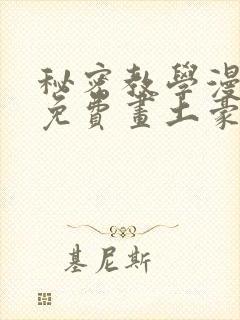 秘密教學漫
免費畫土豪
基尼斯